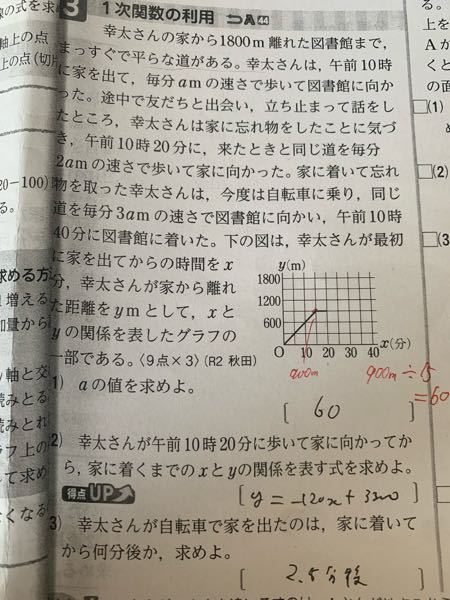 3 1次関数の利用 ⊃A44
幸太さんの家から1800m離れた図書館まで,
まっすぐで平らな道がある。幸太さんは, 午前10時
に家を出て, 毎分amの速さで歩いて図書館に向か
った。途中で友だちと出会い, 立ち止まって話をし
たところ, 幸太さんは家に忘れ物をしたことに気づ
き, 午前10時20分に, 来たときと同じ道を毎分
2amの速さで歩いて家に向かった。家に着いて忘れ
物を取った幸太さんは, 今度は自転車に乗り, 同じ
道を毎分3amの速さで図書館に向かい, 午前10時
40分に図書館に着いた。下の図は, 幸太さんが最初
に家を出てからの時間をx
分, 幸太さんが家から離れ
た距離をymとして, xと
yの関係を表したグラフの
一部である。〈9点×3〉(R2 秋田)
y(m)
1800
1200
600
O 10 20 30 40 x(分)
900m
900m÷15
=60
1) aの値を求めよ。
[ 60 ]
2) 幸太さんが午前10時20分に歩いて家に向かってか
ら, 家に着くまでのxとyの関係を表す式を求めよ。
得点UP
[ y=-120x+3300 ]
3) 幸太さんが自転車で家を出たのは, 家に着いて
から何分後か, 求めよ。
[ 2.5分後 ]
線の式を求め
軸上の点
上の点(切片
20-100)
る。
求める方
増える
加量から
軸と交
読みと
ラフ上の
って求め
くなる
上を
Aが
くと
の面
(1)
(2)
(3